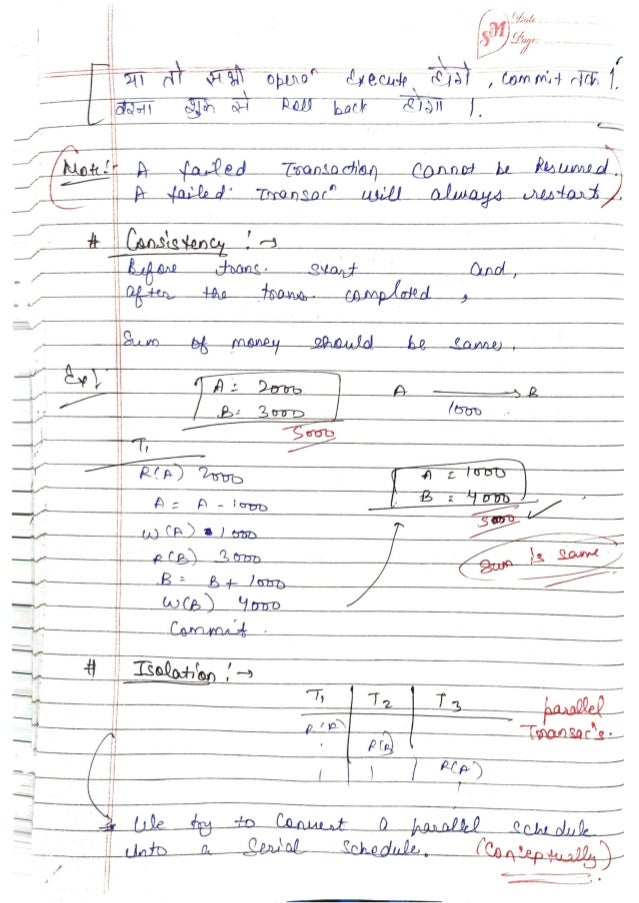 SM Date
Page
या तो सभी operaⁿ execute होंगे, commit तक।
वरना शुरू से Roll back होगा।
Note:- A failed Transaction cannot be Resumed.
A failed Transacⁿ will always restart
# Consistency :→
Before trans. start and,
after the trans. completed ,
Sum of money should be same.
Exp!
A = 2000 A → B
B = 3000 1000
5000
T₁
R(A) 2000 A = 1000
A = A - 1000 B = 4000
W(A) 1000 5000 ✓
R(B) 3000 Sum is same
B = B + 1000
W(B) 4000
Commit.
# Isolation :→
T₁ T₂ T₃ parallel
R(A) Transac's.
R(B)
R(A)
→ We try to convert a parallel schedule
into a Serial Schedule. (Conceptually)